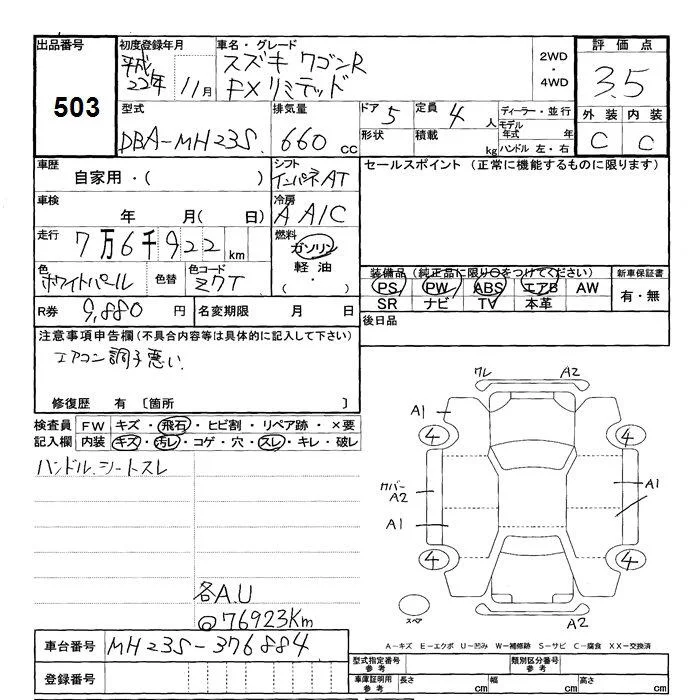 出品番号 初度登録年月 車名・グレード 評価点
503
平成22年 11月
スズキ ワゴンR
FXリミテッド
2WD ・ 4WD
3.5
型式 排気量 ドア 5 定員 4 人 ディーラー・並行
外装 内装
DBA-MH23S 660 cc
形状 積載 kg モデル年式 年
ハンドル 左・右
C C
車歴 シフト セールスポイント (正常に機能するものに限ります)
自家用・( ) インパネAT
車検 冷房
年 月( 日) A A/C
走行 燃料
7万6千922 km ガソリン
軽油
( ・ )
色 色替 色コード
ホワイトパール Z7T
装備品 (純正品に限り○をつけてください) 新車保証書
PS PW ABS エアB AW 有・無
SR ナビ TV 本革
R券 9,880 円 名変期限 月 日
後日品
注意事項申告欄(不具合内容等は具体的に記入して下さい)
エアコン調子悪い
修復歴 有 〔箇所 〕
検査員 FW キズ・飛石・ヒビ割・リペア跡・×要
記入欄 内装 キズ・汚レ・コゲ・穴・スレ・キレ・破レ
ハンドル.シートスレ
ワレ A2
A1
4 4
カバー A2 A1
A1
4 4
各A.U
@76923Km
スペア
A2
車台番号 MH23S-376884
A－キズ E－エクボ U－凹み W－補修跡 S－サビ C－腐食 XX－交換済
登録番号
型式指定番号 参考 類別区分番号 参考
車庫証明用 参考 長さ cm 幅 cm 高さ cm